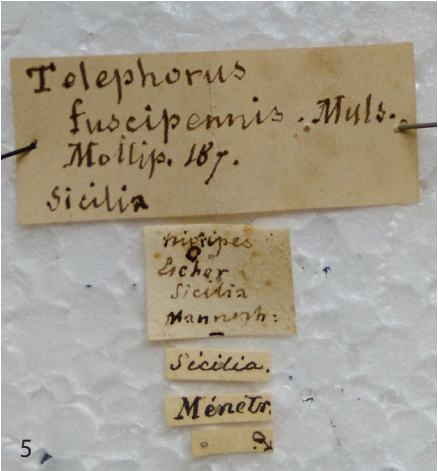 Telephorus
fuscipennis. Muls.
Mollip. 187.
Sicilia
nigripes
Escher
Sicilia
Mannerh:
Sicilia.
Ménetr.
5